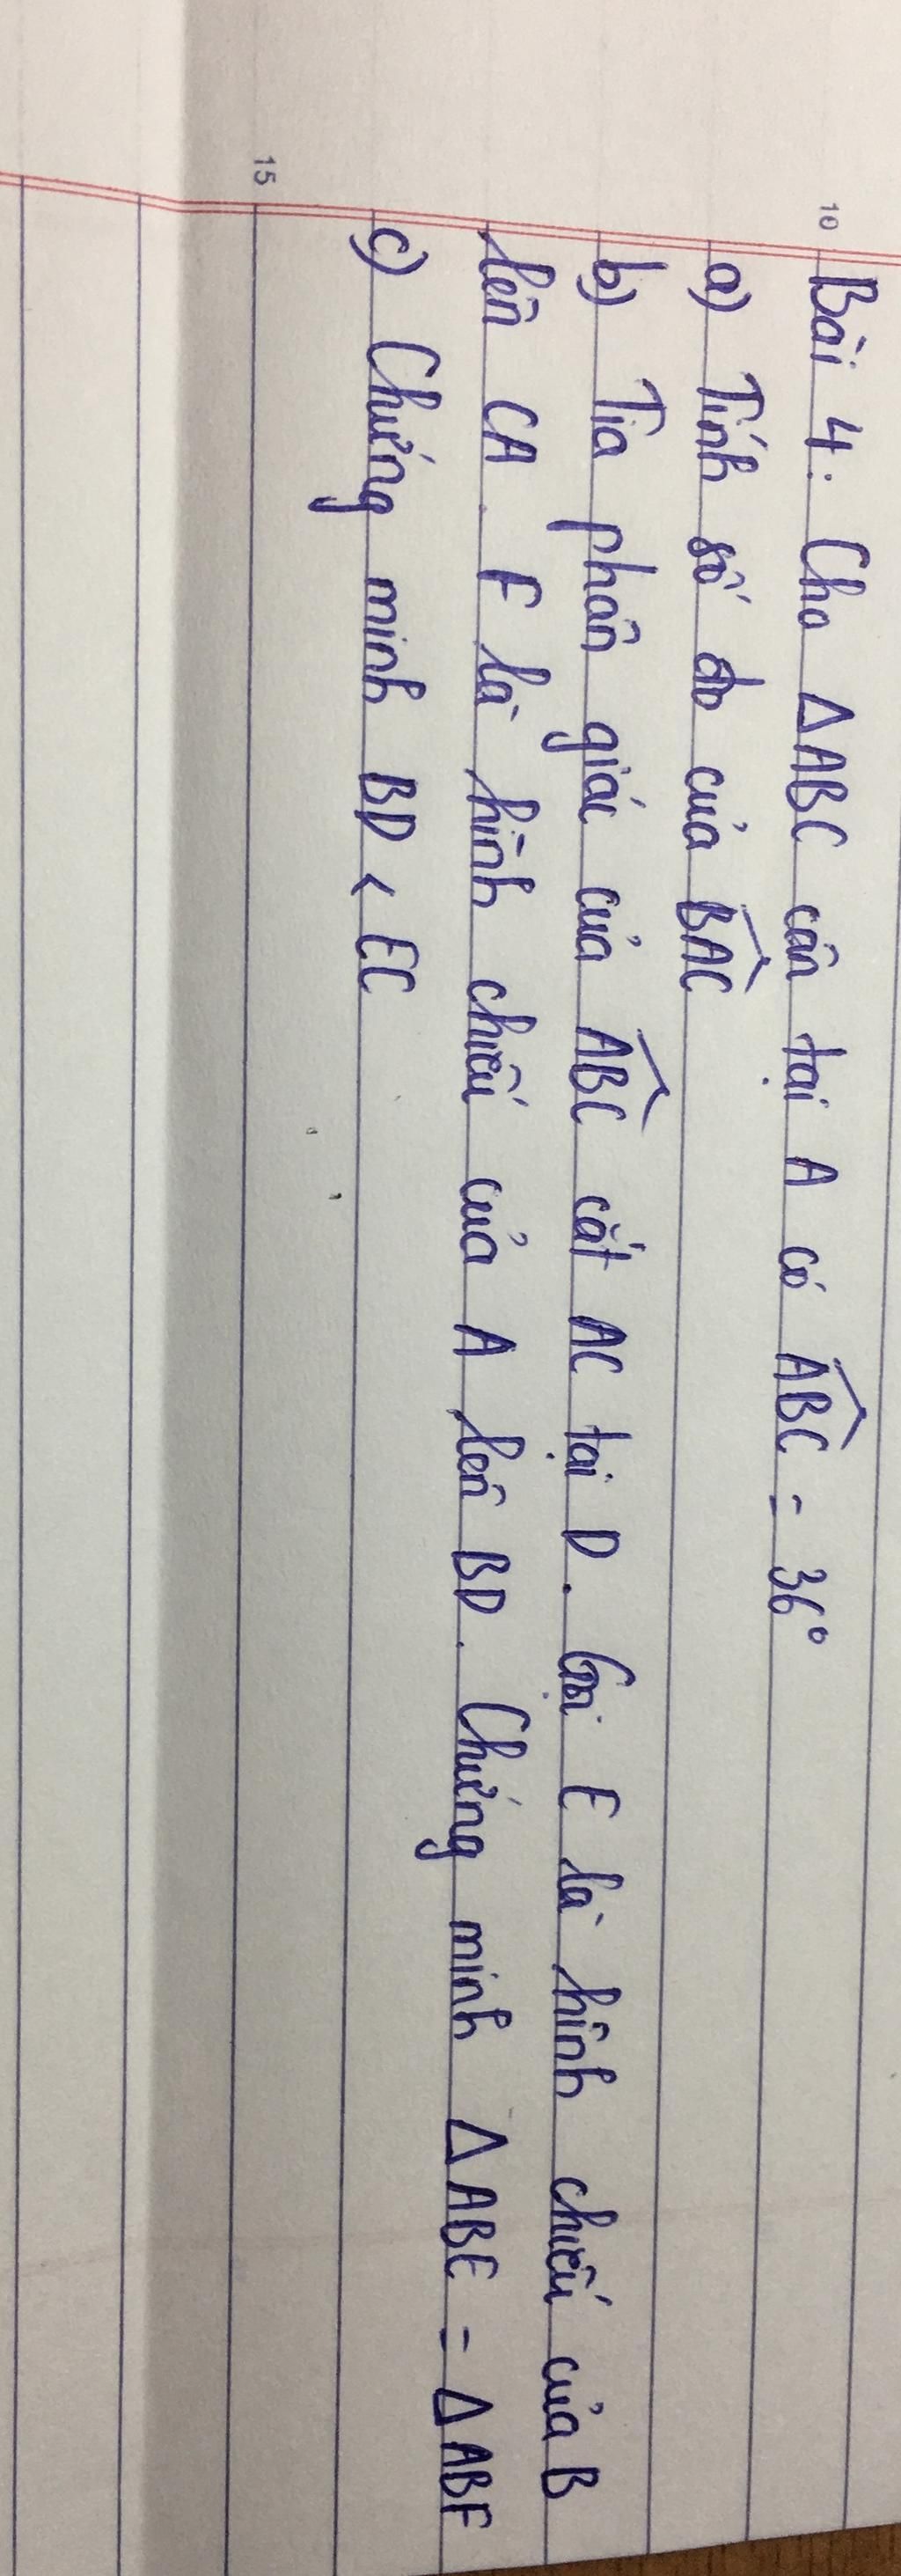 10
Bài 4: Cho ΔABC cân tại A có \widehat{ABC} = 36°
a) Tính số đo của \widehat{BAC}
b) Tia phân giác của \widehat{ABC} cắt AC tại D. Gọi E là hình chiếu của B
lên CA. F là hình chiếu của A lên BD. Chứng minh ΔABE = ΔABF
c) Chứng minh BD < EC
15